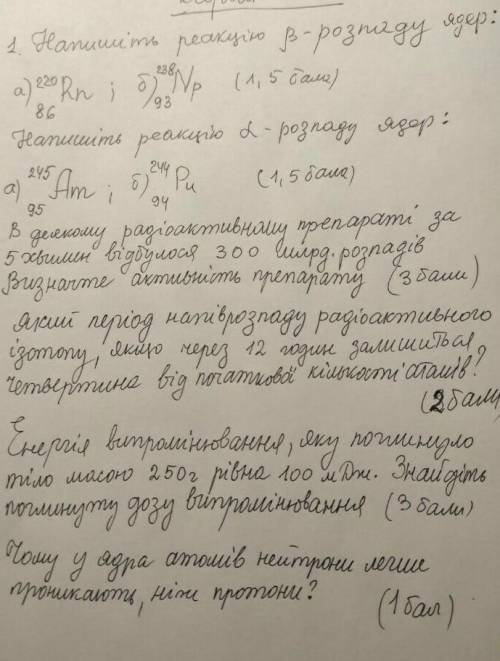 1. Напишіть реакцію β-розпаду ядер:
а) ²²⁰₈₆Rn ; б) ²³⁸₉₃Np (1,5 бала)
Напишіть реакцію α-розпаду ядер:
а) ²⁴⁵₉₅Am ; б) ²⁴⁴₉₄Pu (1,5 бала)
В деякому радіоактивному препараті за
5 хвилин відбулося 300 млрд. розпадів
Визначте активність препарату (3 бали)
Який період напіврозпаду радіоактивного
ізотопу, якщо через 12 годин залишиться
четвертина від початкової кількості атомів?
(2 бали)
Енергія випромінювання, яку поглинуло
тіло масою 250г рівна 100 мДж. Знайдіть
поглинуту дозу випромінювання (3 бали)
Чому у ядра атомів нейтрони легше
проникають, ніж протони?
(1 бал)